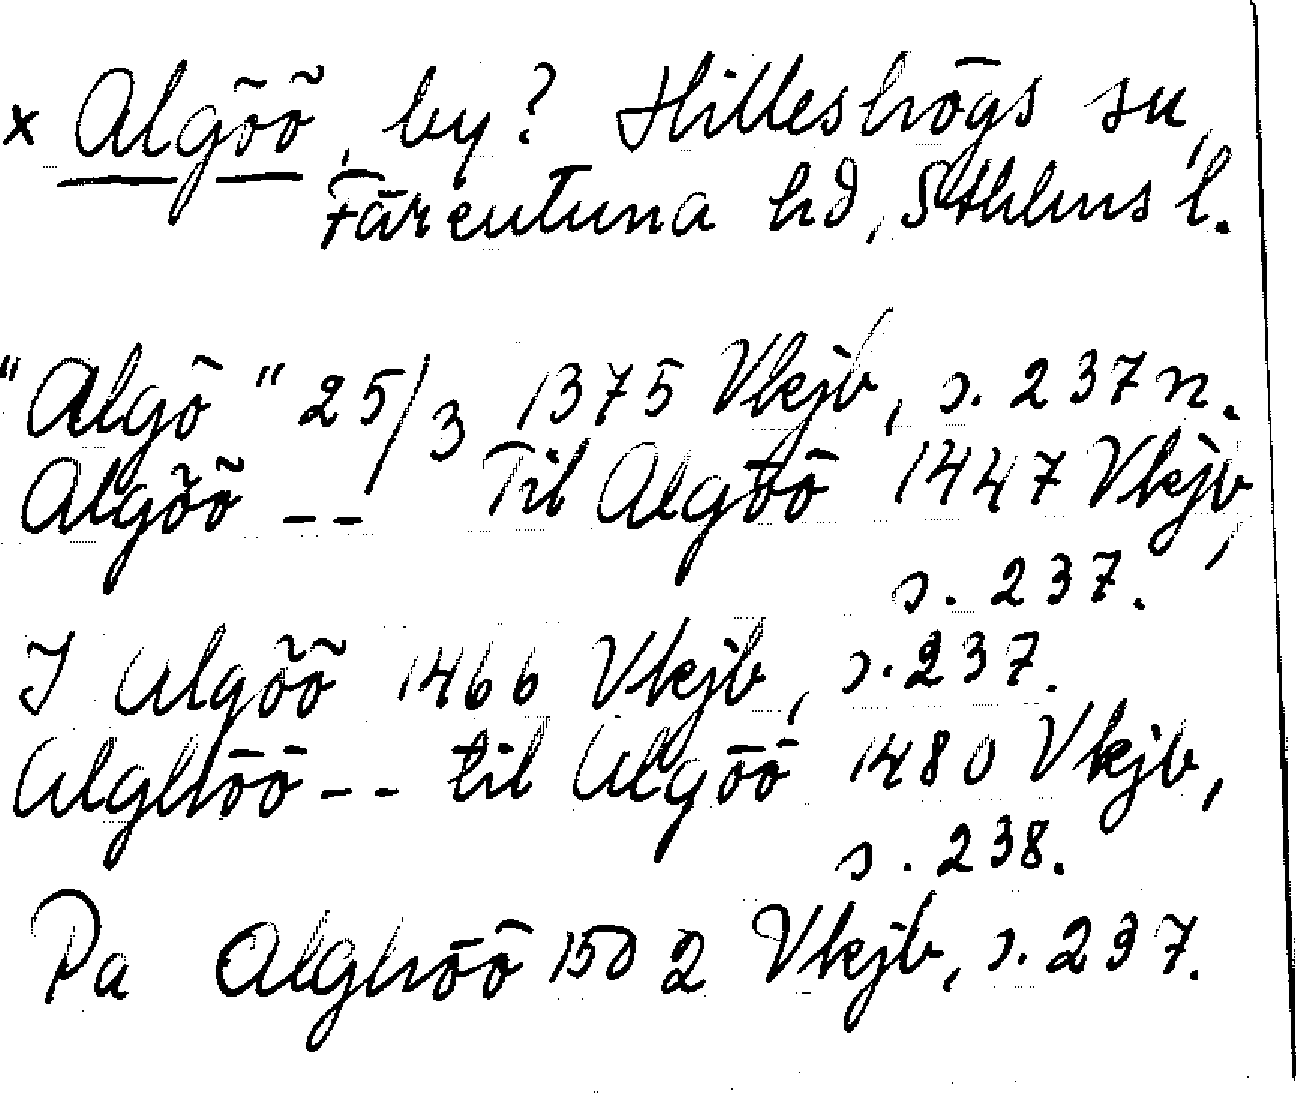 x Algöö, by? Hilleshögs sn,
Färentuna hd, Sthlms l.
"Algö" 25/3 1375 Vkjb, s. 237 n.
Algöö -- Til Algöö 1447 Vkjb,
s. 237.
I Algöö 1466 Vkjb, s. 237.
Alghöö -- til Algöö 1480 Vkjb,
s. 238.
Pa Alghöö 1502 Vkjb, s. 237.